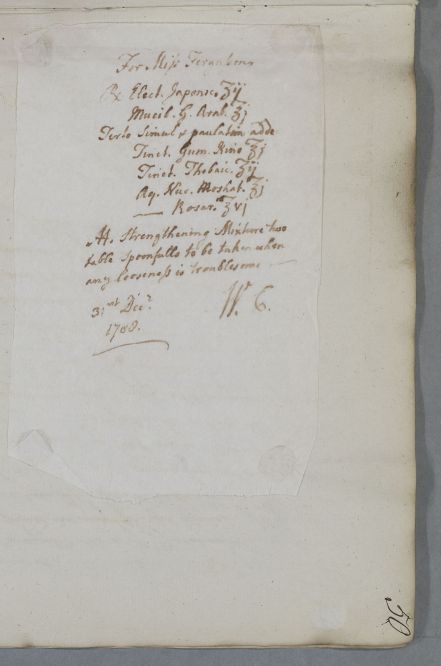 For Miss Ferguson
℞ Elect. Japonic. ʒij
Mucil. G. Arab. ℥j
Tere Simul & paulatim adde
Tinct. Gum. Kino ℥j
Tinct. Thebaic. ʒij
Aq. Nuc. Moshat. ℥j
— Rosar. ℥vj
A Strengthening Mixture two
table spoonfulls to be taken when
any looseness is troublesome —
31st Decr.
1788.
W. C.
50